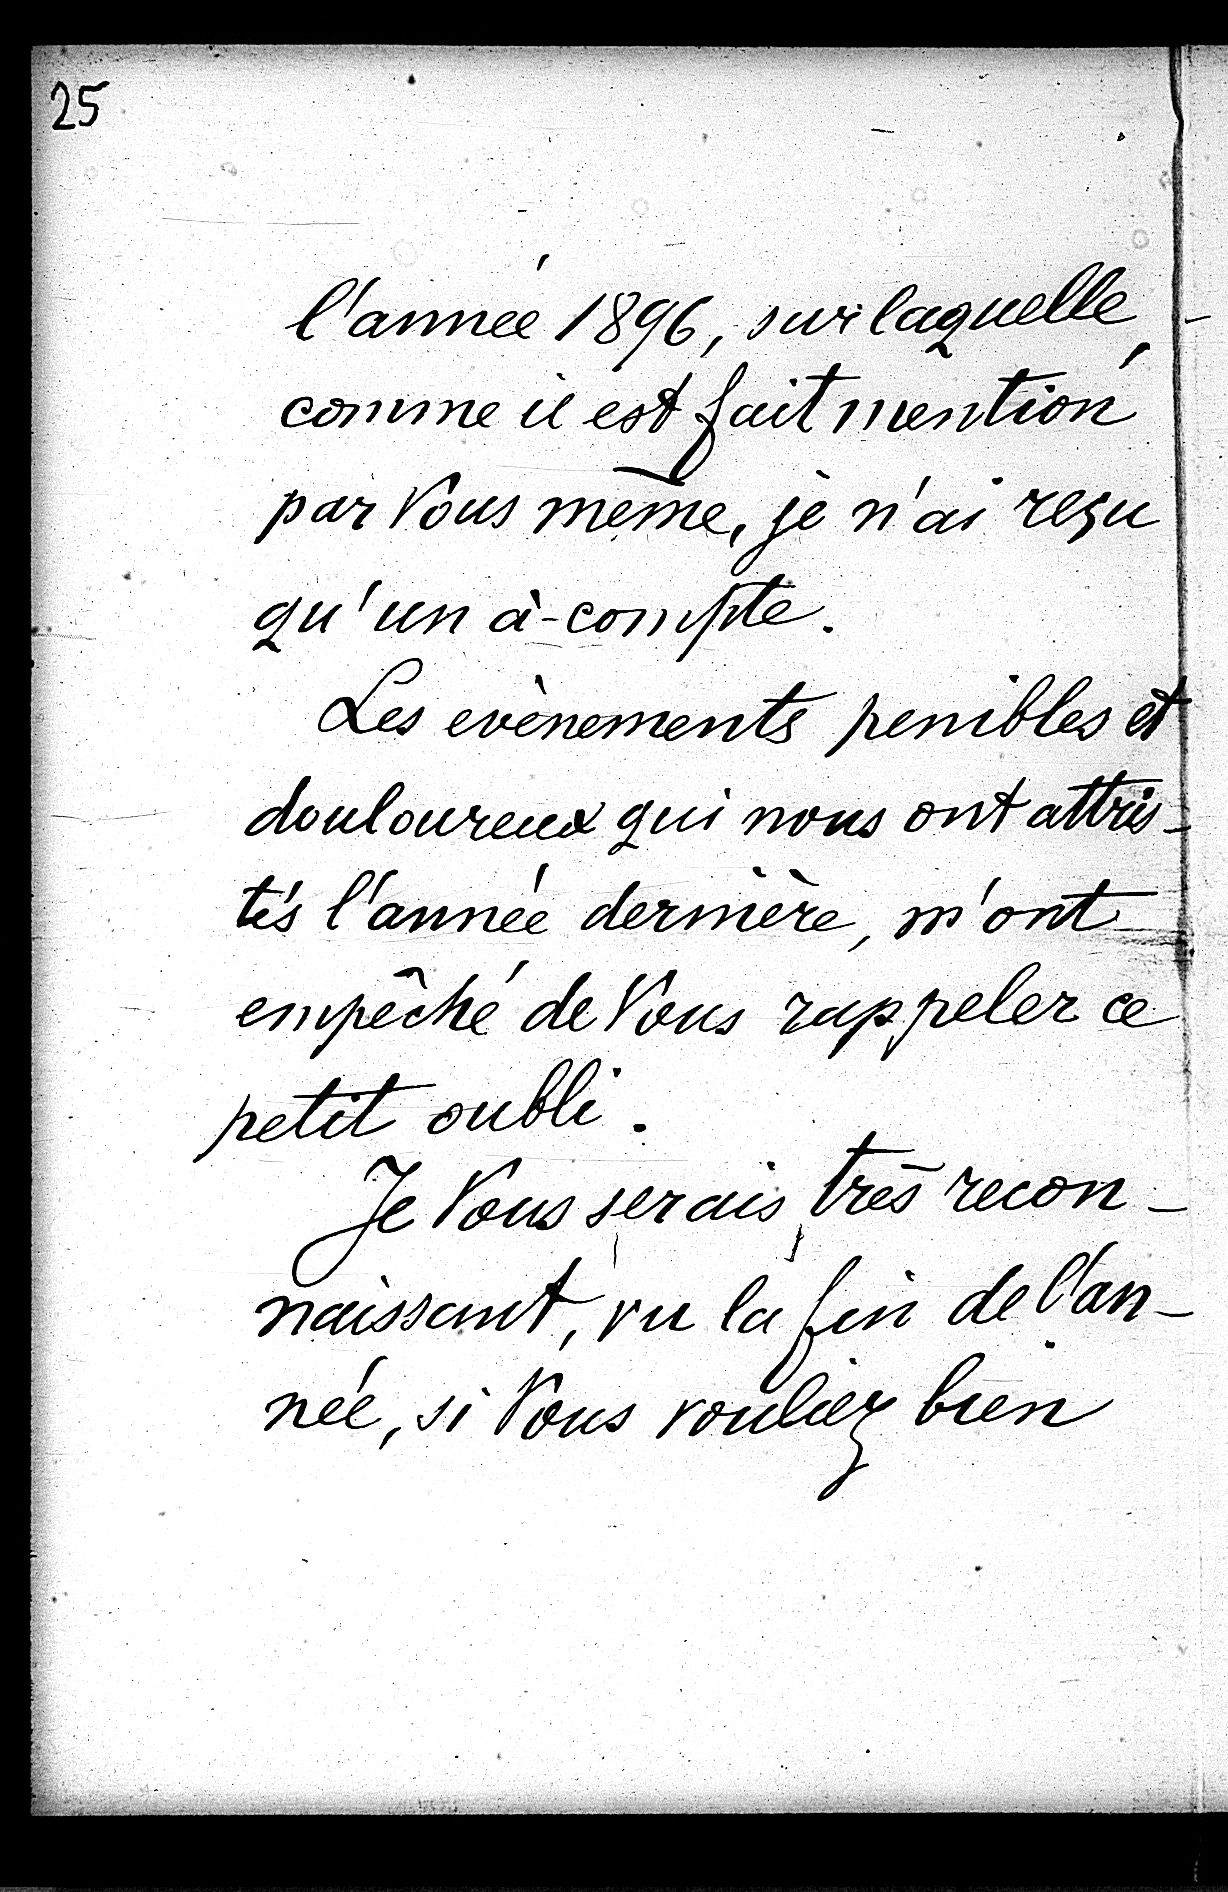 25
l'année 1896, sur laquelle,
comme il est fait mention
par Vous même, je n'ai reçu
qu'un à-compte.
Les evènements penibles et
douloureux qui nous ont attris-
tés l'année dernière, m'ont
empêché de Vous rappeler ce
petit oubli.
Je Vous serais très recon-
naissant, vu la fin de l'an-
née, si Vous vouliez bien